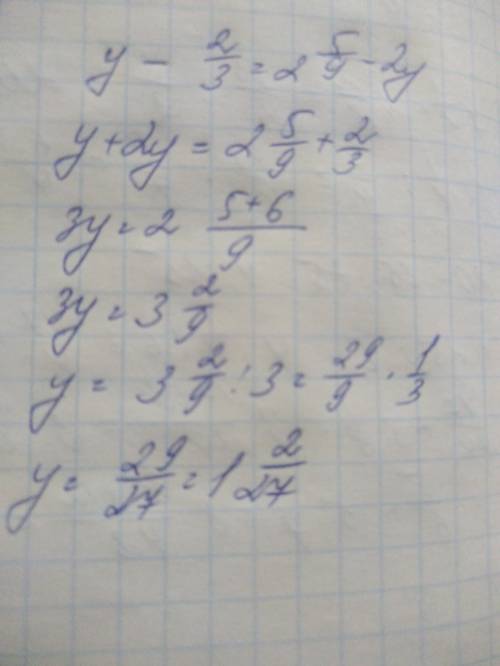 y - 2/3 = 2 5/9 - 2y
y + 2y = 2 5/9 + 2/3
3y = 2 (5+6)/9
3y = 3 2/9
y = 3 2/9 : 3 = 29/9 · 1/3
y = 29/27 = 1 2/27